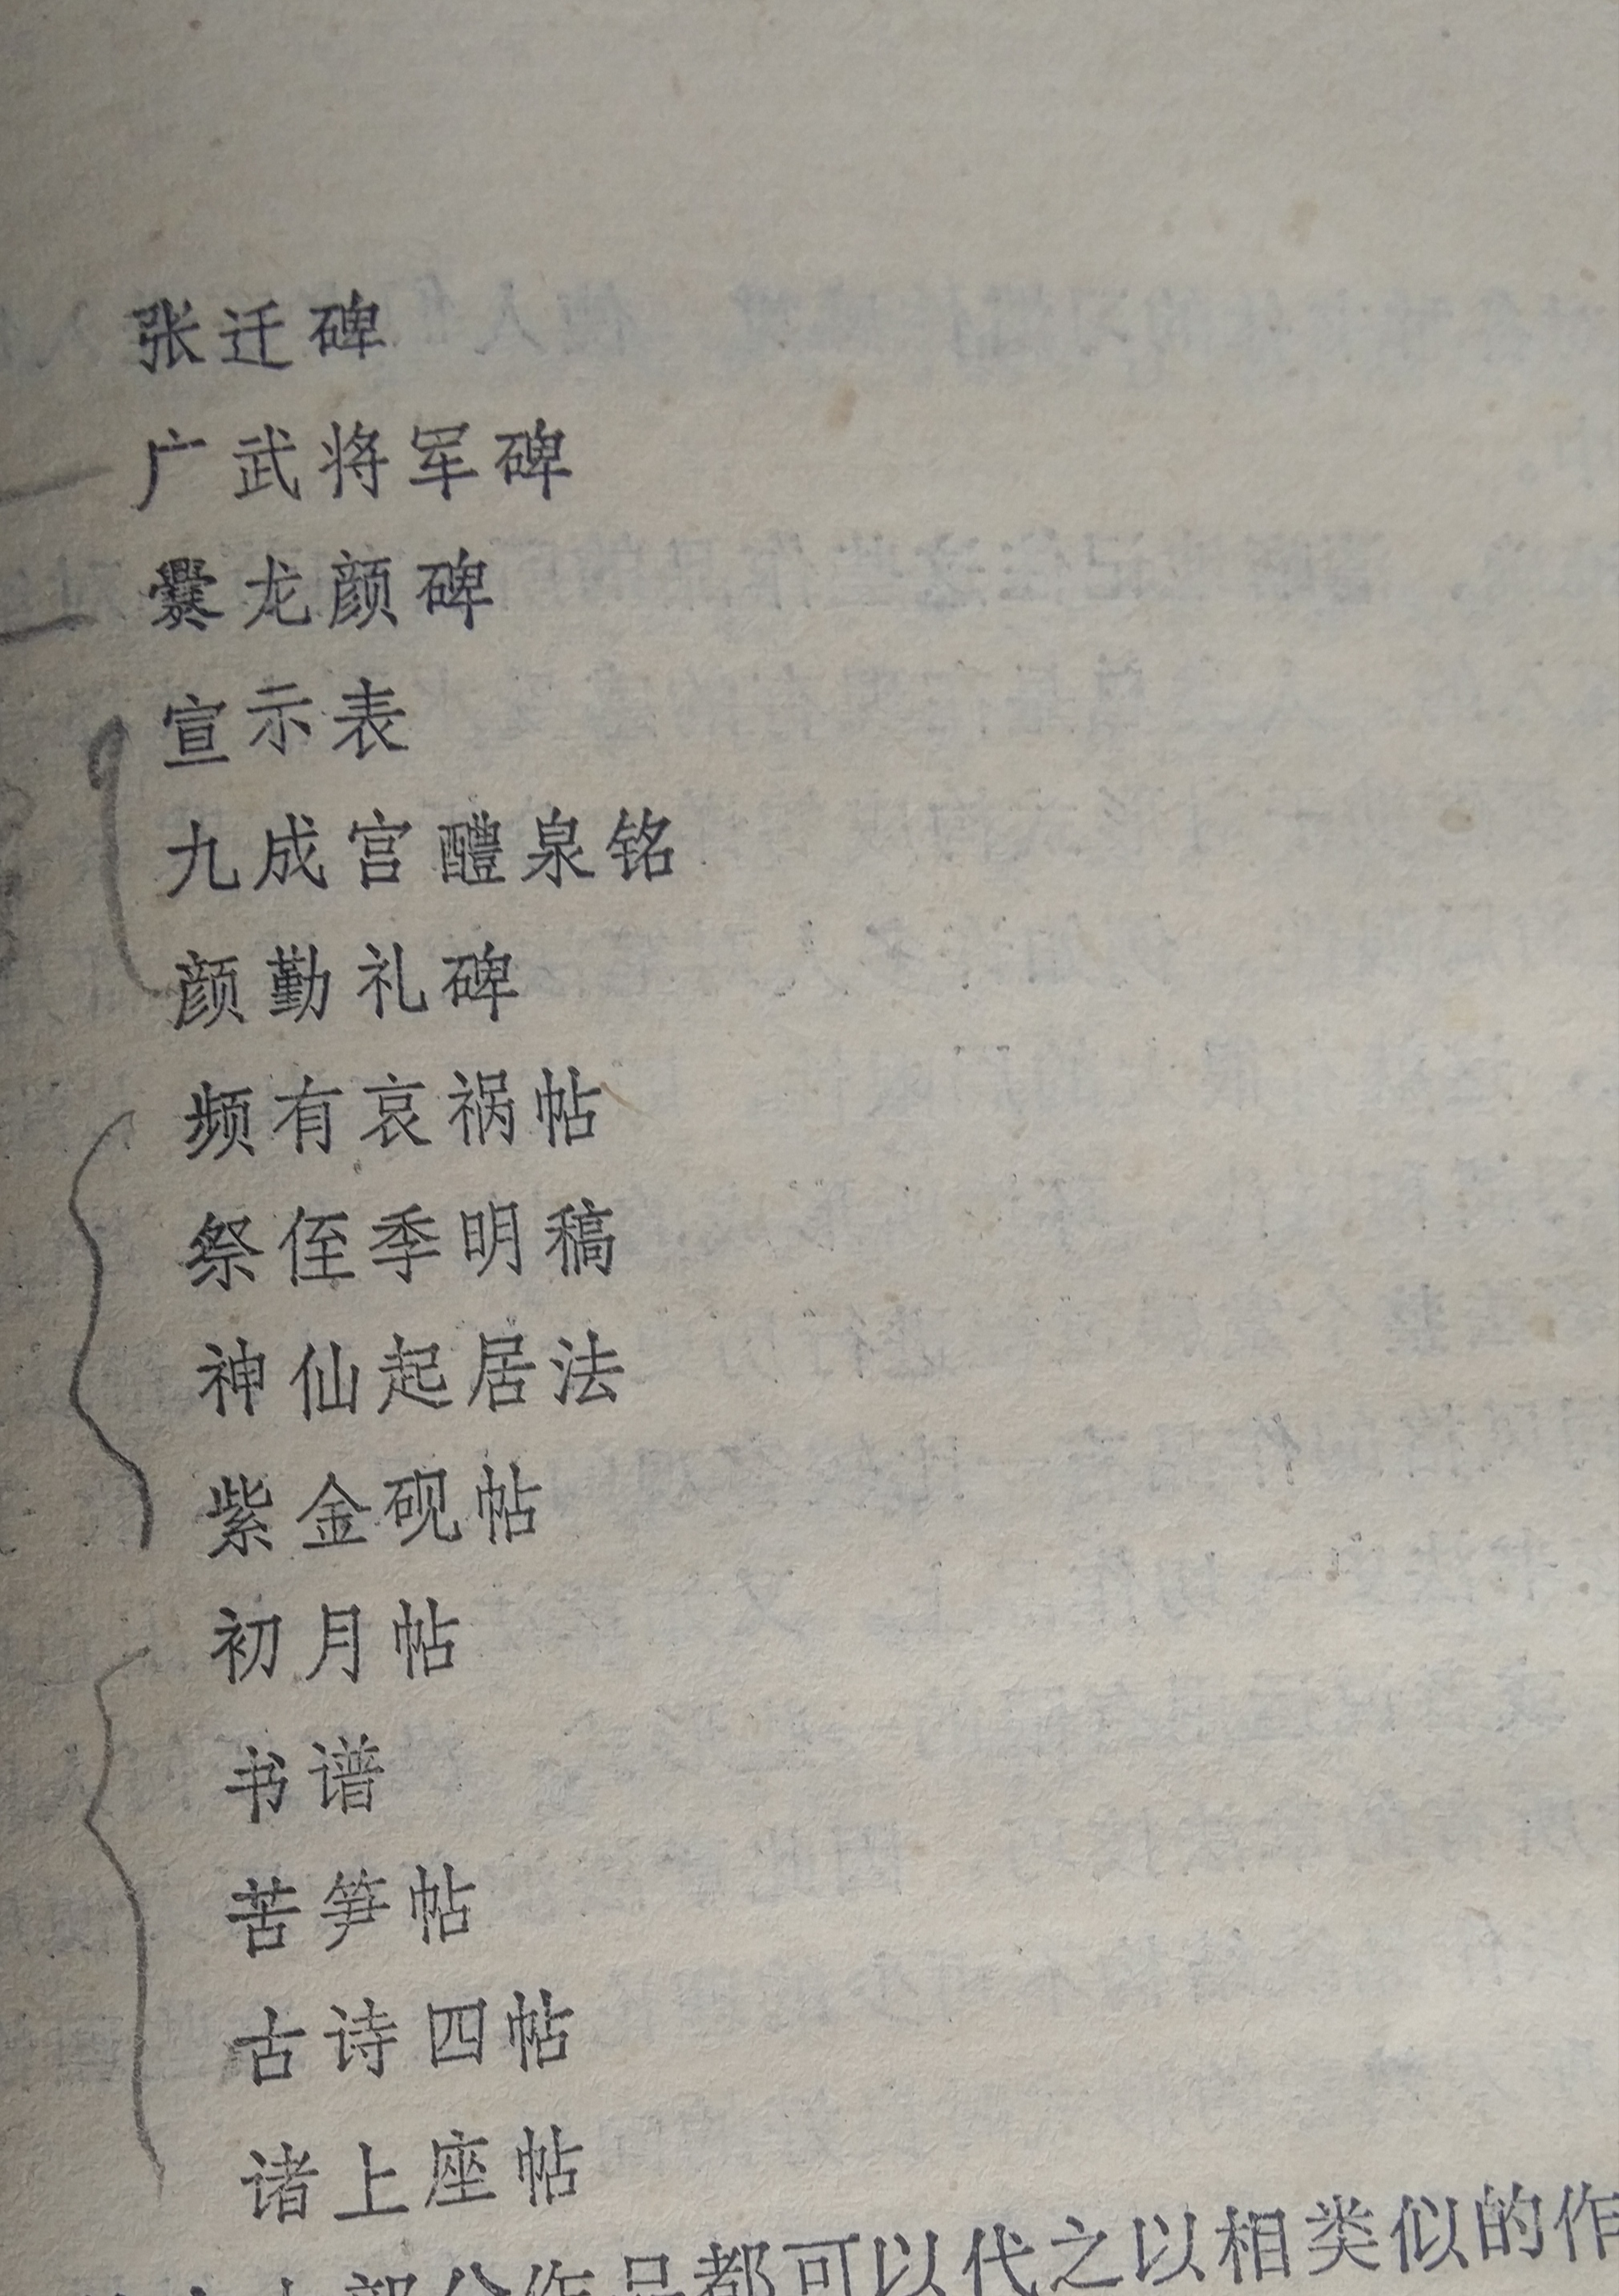 张迁碑
广武将军碑
爨龙颜碑
宣示表
九成宫醴泉铭
颜勤礼碑
频有哀祸帖
祭侄季明稿
神仙起居法
紫金砚帖
初月帖
书谱
苦笋帖
古诗四帖
诸上座帖
部分作品都可以代之以相类似的作